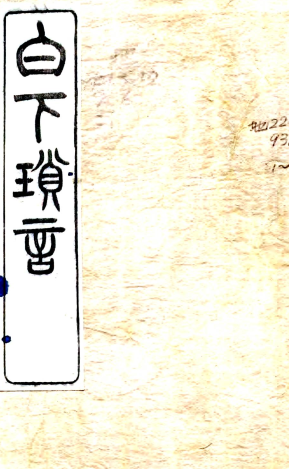 白下瑣言
地22
93
1~